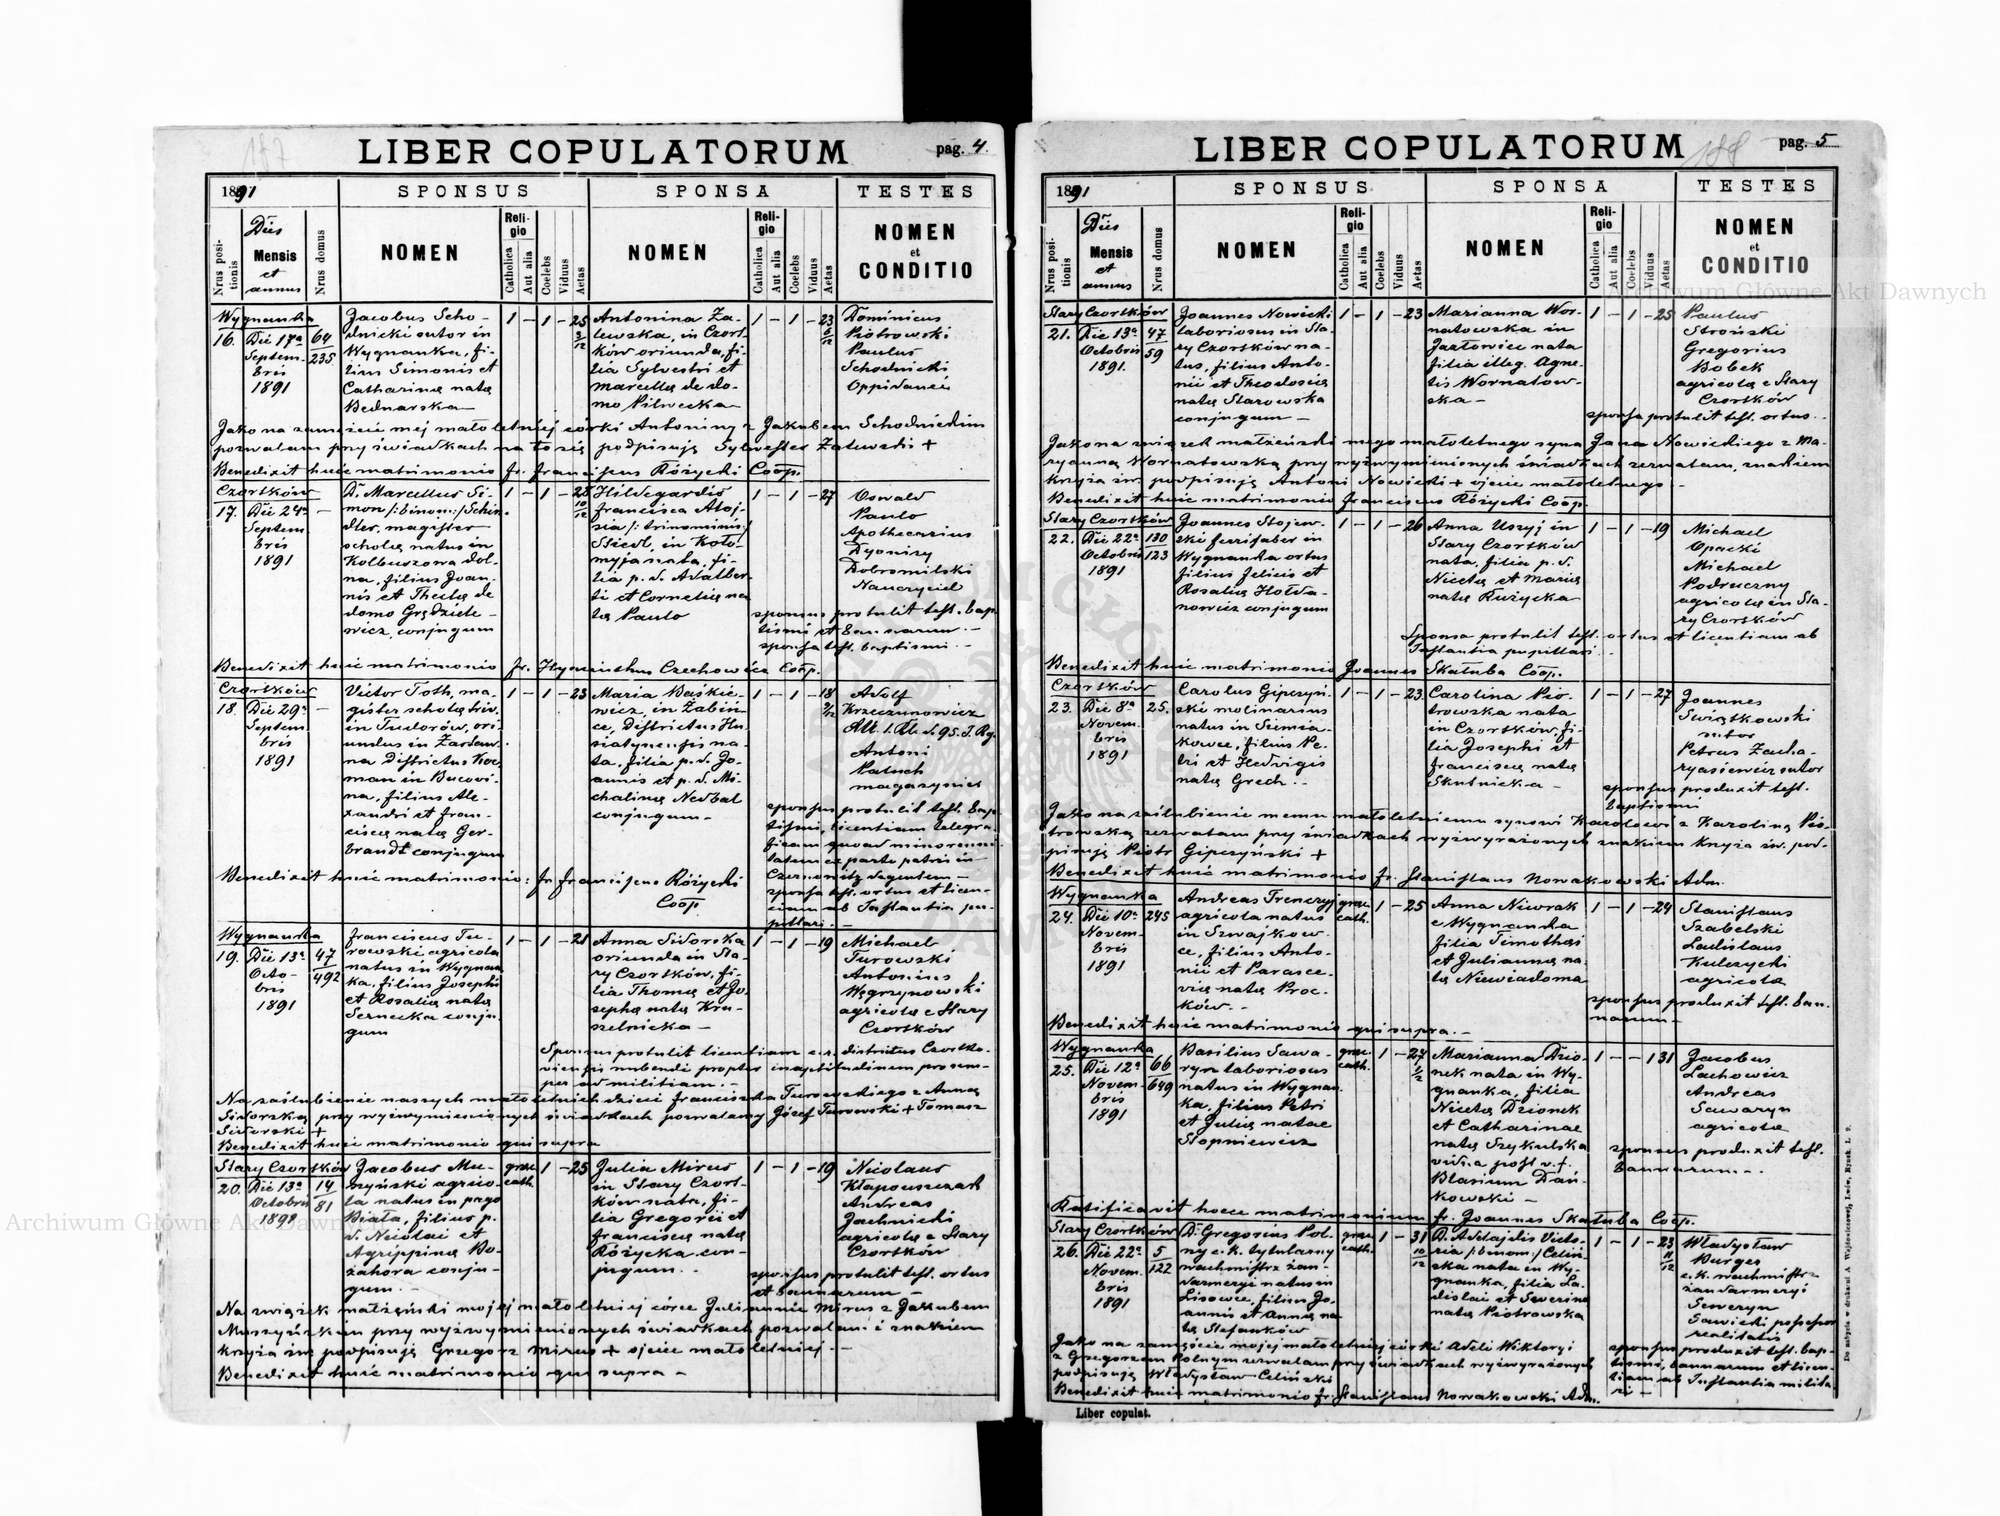 LIBER COPULATORUM pag. 4.
187
1891
SPONSUS
SPONSA
TESTES
Nrus positionis
Dies
Mensis
et
annus
Nrus domus
NOMEN
Religio
Catholica
Aut alia
Coelebs
Viduus
Aetas
NOMEN
Religio
Catholica
Aut alia
Coelebs
Viduus
Aetas
NOMEN
et
CONDITIO
Wygnanka
16. Die 17a
Septem-
bris
1891
64
235
Jacobus Scho-
dnicki sutor in
Wygnanka, fi-
lius Simonis et
Catharinæ natæ
Bednarska
1 - 1 - 25
Antonina Za-
lewska, in Czort-
ków oriunda, fi-
lia Sylvestri et
Marcellæ de do-
mo Pilwecka
1 - 1 - 23
Dominicus
Piotrowski
Paulus
Schodnicki
Oppidanei
Jako na zamęście mej małoletniej córki Antoniny z Jakubem Schodnickim
pozwalam przy świadkach na to się podpisuję Sylwester Zalewski +
Benedixit huic matrimonio fr. Franciscus Różycki Coop.
Czortków
17. Die 24a
Septem
bris
1891
D. Marcellus Si-
mon /: binom :/ Schin-
dler, magister
scholæ natus in
Kolbuszowa dol-
na, filius Joan-
nis et Theclæ de
domo Grędziele-
wicz, conjugum
1 - 1 - 28
10/12
Hildegardis
Francisca Aloj-
sia /: trinominis :/
Siedl, in Koło-
myja nata, fi-
lia p. d. Adalber-
ti et Corneliæ na-
tæ Paulo
1 - 1 - 27
Oswald
Paulo
Apothecarius
Dyonizy
Dobromilski
Nauczyciel
sponsus protulit test. bap-
tismi et bannorum. -
sponsa test. baptismi. -
Benedixit huic matrimonio fr. Hyacinthus Czechowicz Coop.
Czortków
18. Die 29a
Septem
bris
1891
Victor Toth, ma-
gister scholæ triv.
in Tudorów, ori-
undus in Zastaw-
na Districtus Koc-
man in Bucovi-
na, filius Ale-
xandri et Fran-
ciscæ natæ Ger-
brandt conjugum
1 - 1 - 23
Maria Baśkie-
wicz, in Żabiń-
ce, Districtus Hu-
siatynensis na-
ta, filia p. d. Jo-
annis et p. d. Mi-
chalinæ Nedbal
conjugum -
1 - 1 - 18
9/12
Adolf
Krzeczunowicz
Antoni
Paluch
magazynier
sponsus protulit test. bap-
tismi, licentiam telegra-
ficam quoad minorenni-
tatem ex parte patris in
Czernowitz degentem -
sponsa test. ortus et licen-
tiam ab Instantia pu-
pillari. -
Benedixit huic matrimonio: fr. Franciscus Różycki
Coop.
Wygnanka
19. Die 13a
Octo-
bris
1891
47
492
Franciscus Tu-
rowski agricola
natus in Wygnan-
ka, filius Josephi
et Rosaliæ natæ
Sernecka conju-
gum
1 - 1 - 21
Anna Sidorska
oriunda in Sta-
ry Czortków, fi-
lia Thomæ et Jo-
sephæ natæ Kra-
szelnicka -
1 - 1 - 19
Michael
Turowski
Antonius
Węgrzynowski
agricolæ e Stary
Czortków
Sponsus protulit licentiam c. r. districtus Czortko-
viensis nubendi propter inaptitudinem pro sem-
per ad militiam. -
Na zaślubienie naszych małoletnich dzieci Franciszka Turowskiego z Anną
Sidorską przy wyżwymienionych świadkach pozwalamy Józef Turowski + Tomasz
Sidorski +
Benedixit huic matrimonio qui supra
Stary Czortków
20. Die 13a
Octobris
1891
14
81
Jacobus Mu-
szyński agrico-
la natus in pago
Biała, filius p.
d. Nicolai et
Agrippinæ Bo-
zahora conju-
gum. -
græc
cath.
1 - 25
Julia Mirus
in Stary Czort-
ków nata, fi-
lia Gregorii et
Franciscæ natæ
Różycka con-
jugum. -
1 - 1 - 19
Nicolaus
Kłapouszczak
Andreas
Jachnicki
agricolæ e Stary
Czortków
sponsus protulit test. ortus
et bannorum -
Na związek małżeński mojej małoletniej córce Juliannie Mirus z Jakubem
Muszyńskim przy wyżwymienionych świadkach pozwalam i znakiem
krzyża św. podpisuję Grzegorz Mirus + ojciec małoletniej. -
Benedixit huic matrimonio qui supra -
LIBER COPULATORUM pag. 5
188
1891
SPONSUS
SPONSA
TESTES
Nrus positionis
Dies
Mensis
et
annus
Nrus domus
NOMEN
Religio
Catholica
Aut alia
Coelebs
Viduus
Aetas
NOMEN
Religio
Catholica
Aut alia
Coelebs
Viduus
Aetas
NOMEN
et
CONDITIO
Stary Czortków
21. Die 13a
Octobris
1891.
47
59
Joannes Nowicki
laboriosus in Sta-
ry Czortków na-
tus, filius Anto-
nii et Theodosiæ
natæ Starowska
conjugum -
1 - 1 - 23
Marianna Wor-
natowska in
Jazłowice nata
filia illeg. Agne-
tis Wornatow-
ska -
1 - 1 - 25
Paulus
Stroński
Gregorius
Bobek
agricolæ e Stary
Czortków
sponsa protulit test. ortus.
Jako na związek małżeński mego małoletnego syna Jana Nowickiego z Ma-
ryanną Wornatowską przy wyżwymienionych świadkach zezwalam, znakiem
krzyża św. podpisuję Antoni Nowicki + ojciec małoletnego -
Benedixit huic matrimonio Franciscus Różycki Coop.
Stary Czortków
22. Die 22a
Octobris
1891
130
123
Joannes Stojew-
ski ferrifaber in
Wygnanka ortus
filius Felicis et
Rosaliæ Hołda-
nowicz conjugum
1 - 1 - 26
Anna Uszyj in
Stary Czortków
nata, filia p. d.
Nicetæ et Mariæ
natæ Rużycka
1 - 1 - 19
Michael
Opacki
Michael
Podruczny
agricolæ in Sta-
ry Czortków
Sponsa protulit test. ortus et licentiam ab
Instantia pupillari. -
Benedixit huic matrimonio Joannes Skałuba Coop.
Czortków
23. Die 8a
Novem-
bris
1891
25.
Carolus Gipczyń-
ski molinarius
natus in Siemia-
kowce, filius Pe-
tri et Hedvigis
natæ Grech. -
1 - 1 - 23.
Carolina Pio-
trowska nata
in Czortków, fi-
lia Josephi et
Franciscæ natæ
Skutnicka -
1 - 1 - 27
Joannes
Świątkowski
sutor
Petrus Zacha-
ryasiewicz sutor
sponsus produxit test.
baptismi
Jako na zaślubienie memu małoletniemu synowi Karolowi z Karoliną Pio-
trowską zezwalam przy świadkach wyżwyrażonych znakiem krzyża św. pod-
pisuję Piotr Gipczyński +
Benedixit huic matrimonio fr. Stanislaus Nowakowski Adm.
Wygnanka
24. Die 10a
Novem-
bris
1891
245
Andreas Frenczyj
agricola natus
in Szwajkow-
ce, filius Anto-
nii et Parasce-
viæ natæ Proc-
ków. -
græc
cath.
1 - 25
Anna Niwrak
e Wygnanka
filia Timothei
et Juliannæ na-
tæ Niewiadoma
1 - 1 - 24
Stanislaus
Szabelski
Ladislaus
Kulczycki
agricolæ
sponsus produxit test. ban-
norum -
Benedixit huic matrimonio qui supra. -
Wygnanka
25. Die 12a
Novem-
bris
1891
66
649
Basilius Sawa-
ryn laboriosus
natus in Wygnan-
ka, filius Petri
et Juliæ natae
Stopniewicz
græc.
cath.
1 - 27
Marianna Dzio-
nek nata in Wy-
gnanka, filia
Nicetæ Dzionek
et Catharinae
natæ Szykulska
vidua post d. f.
Blasium Dań-
kowski -
1 - - 1 31
Jacobus
Lachowicz
Andreas
Sawaryn
agricolæ
sponsus produxit test.
bannorum. -
Ratificavit hocce matrimonium fr. Joannes Skałuba Coop.
Stary Czortków
26. Die 22a
Novem-
bris
1891
5
122
D. Gregorius Pol-
ny c. k. tytularny
wachmistrz żan-
darmeryi natus in
Lisowce, filius Jo-
annis et Annæ na-
tæ Stefanków
græc
cath.
1 - 31
10/12
D. Adelajdis Victo-
ria /: binom :/ Celiń-
ska nata in Wy-
gnanka, filia La-
dislai et Severinæ
natæ Piotrowska
1 - 1 - 23
11/12
Władysław
Burger
c. k. wachmistrz
żandarmeryi
Seweryn
Sawicki possessor
realitatis
Jako na zamęście mojej małoletniej córki Adeli Wiktoryi
z Grzegorzem Polnym zezwalam przy świadkach wyżwyrażonych
podpisuję Władysław Celiński
sponsus produxit test. bap-
tismi, bannorum et licen-
tiam ab Instantia milita-
ri -
Benedixit huic matrimonio fr. Stanislaus Nowakowski Adm.
Liber copulat.
Archiwum Główne Akt Dawnych
Archiwum Główne Akt Dawnych